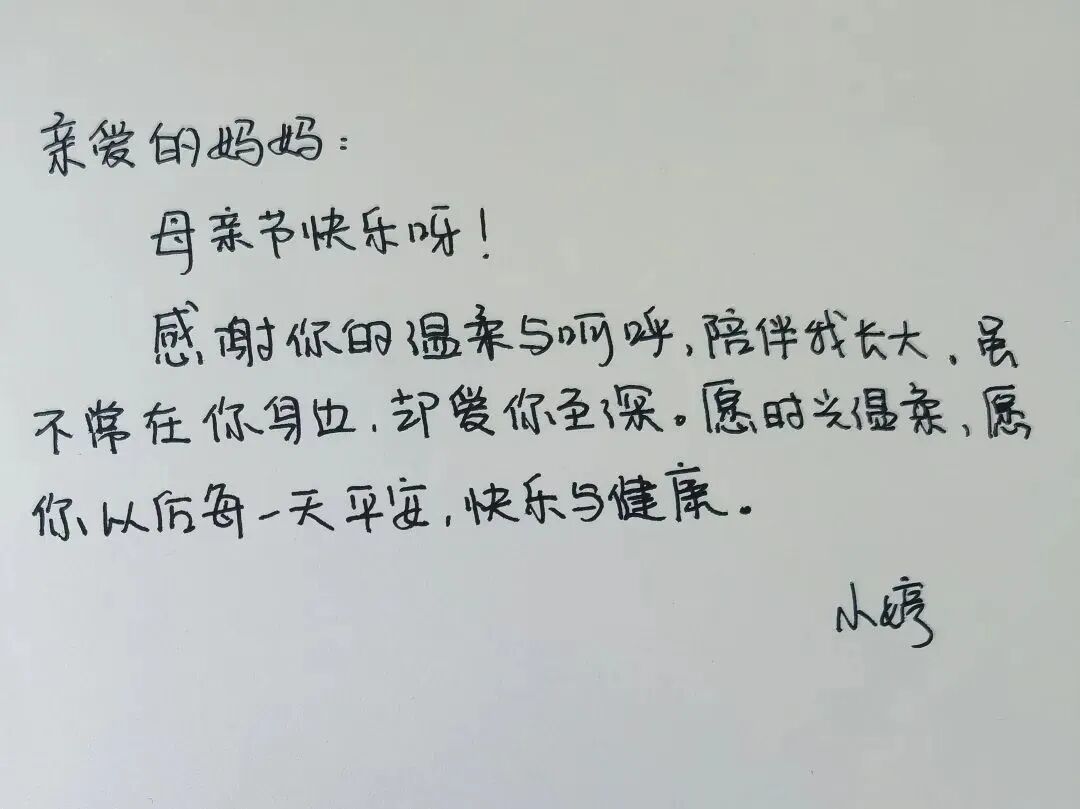 亲爱的妈妈：
母亲节快乐呀！
感谢你的温柔与呵呼，陪伴我长大，虽
不常在你身边，却爱你至深。愿时光温柔，愿
你以后每一天平安，快乐与健康。
小婷